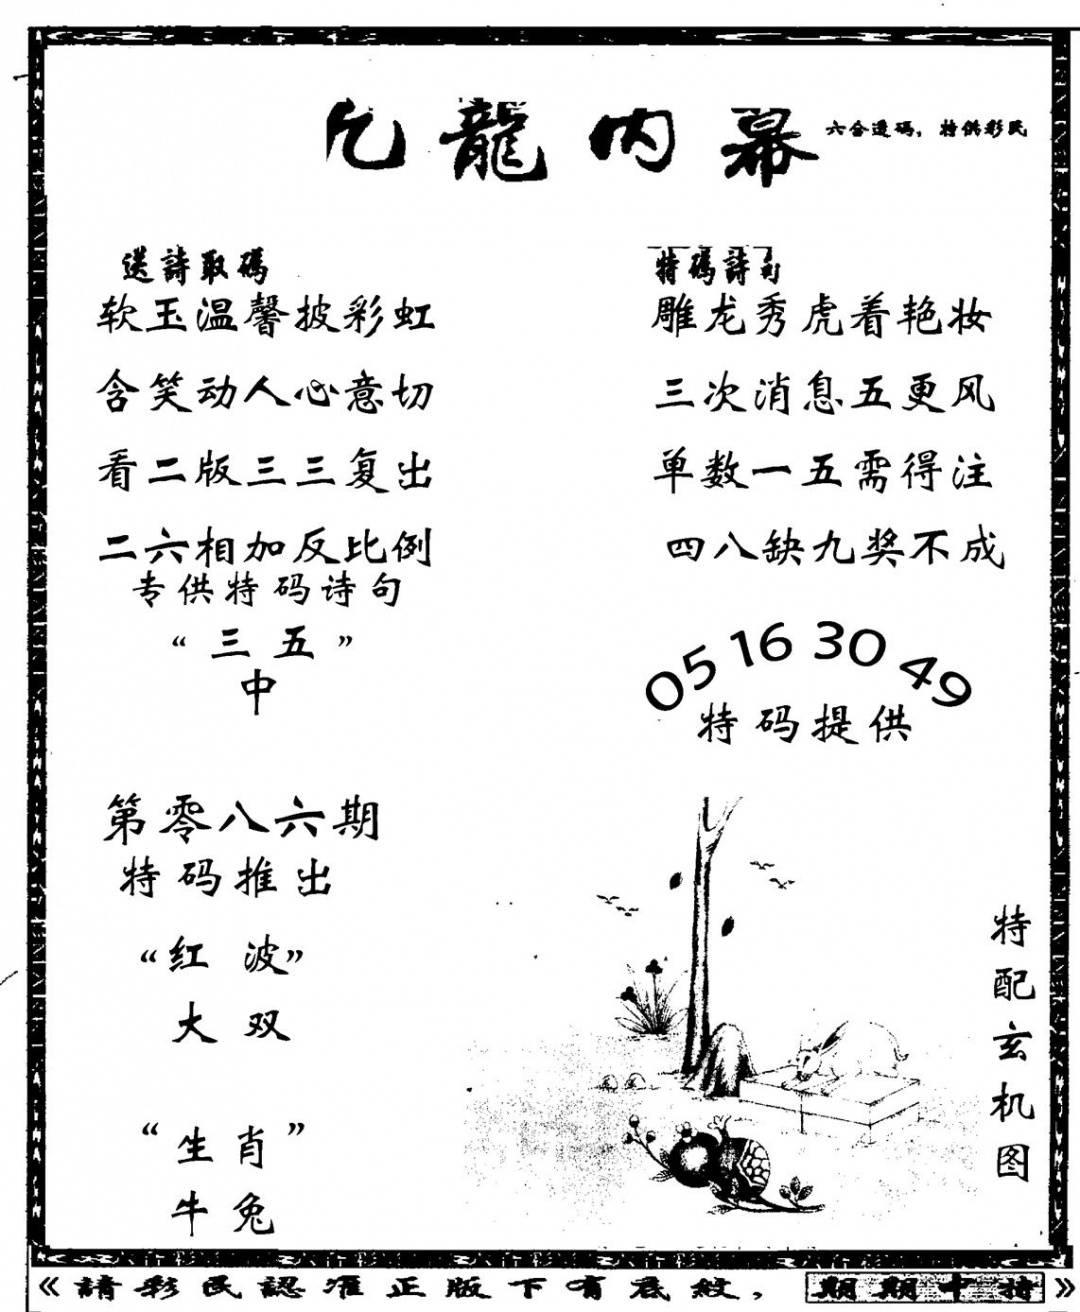 九龍内幕
六合透碼，特供彩民
送詩取碼
软玉温馨披彩虹
含笑动人心意切
看二版三三复出
二六相加反比例
专供特码诗句
“三五”
中
特碼詩句
雕龙秀虎着艳妆
三次消息五更风
单数一五需得注
四八缺九奖不成
05 16 30 49
特码提供
第零八六期
特码推出
“红波”
大双
“生肖”
牛兔
特配玄机图
《請彩民認准正版下有底紋，期期中特》